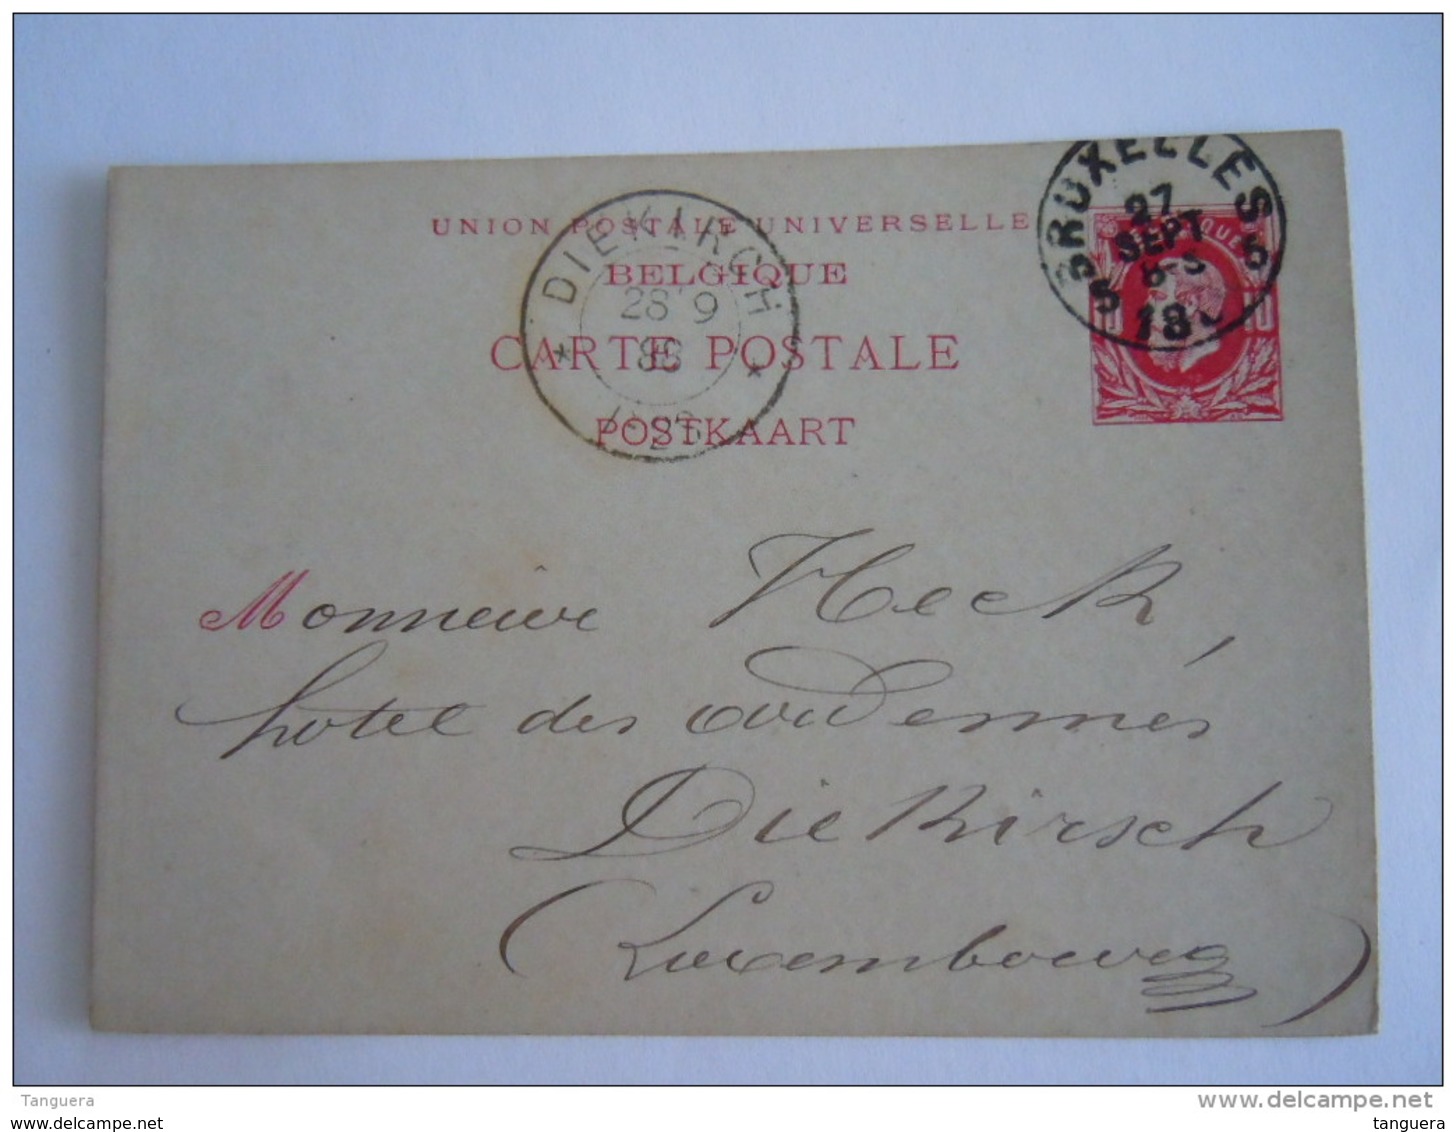 UNION POSTALE UNIVERSELLE
BELGIQUE
CARTE POSTALE
POSTKAART
DIEKIRCH
28 9
BRUXELLES
27
SEPT
5 5
18
Monsieur Heck,
hotel des Ardennes
Diekirsch
(Luxembourg)
Tanguera
www.delcampe.net
Tanguera www.delcampe.net
tanguera